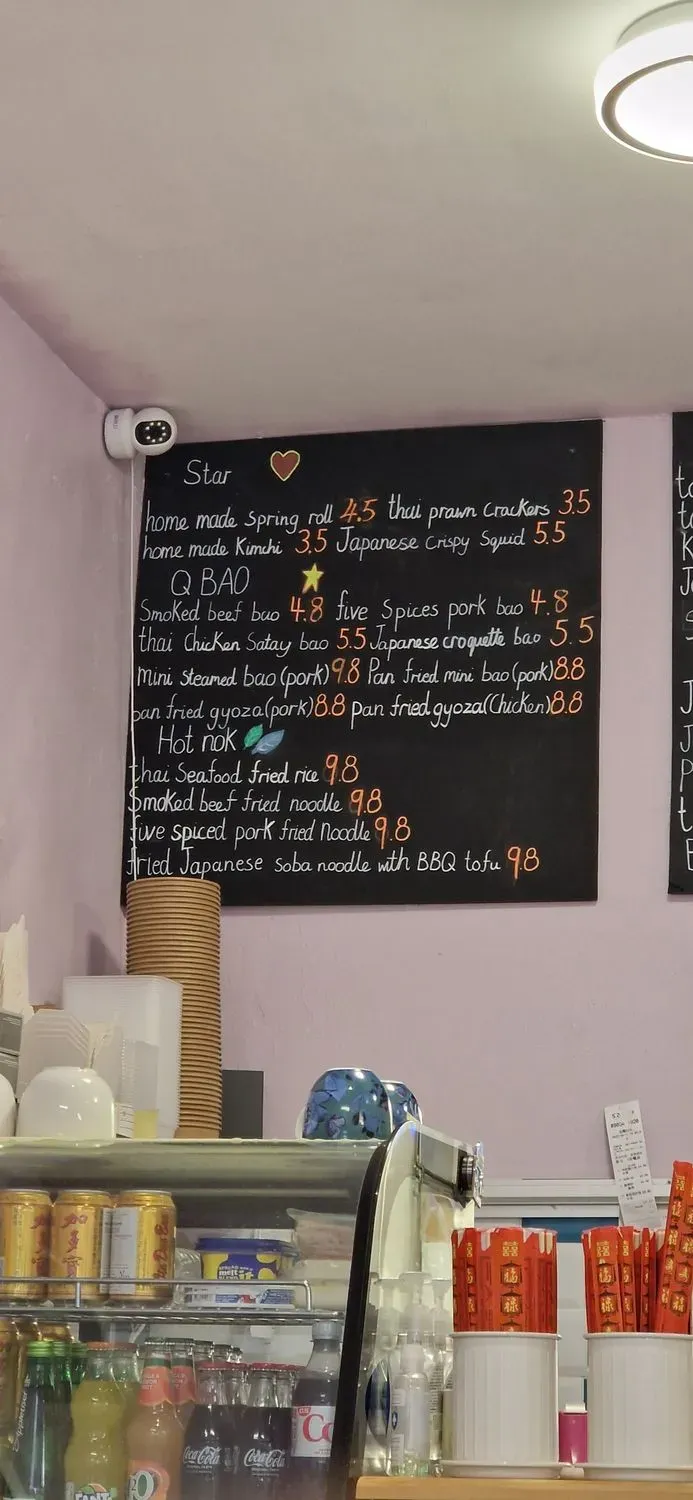 Star
home made spring roll 4.5 thai prawn crackers 3.5
home made Kimchi 3.5 Japanese crispy squid 5.5
Q BAO
Smoked beef bao 4.8 five Spices pork bao 4.8
thai chicken Satay bao 5.5 Japanese croquette bao 5.5
mini steamed bao (pork) 9.8 Pan fried mini bao (pork) 8.8
pan fried gyoza (pork) 8.8 pan fried gyoza (Chicken) 8.8
Hot nok
thai Seafood fried rice 9.8
Smoked beef fried noodle 9.8
five spiced pork fried Noodle 9.8
fried Japanese soba noodle with BBQ tofu 9.8
加多宝
Appletiser
FANTA
Coca-Cola
Coca-Cola
福
禄
福
禄